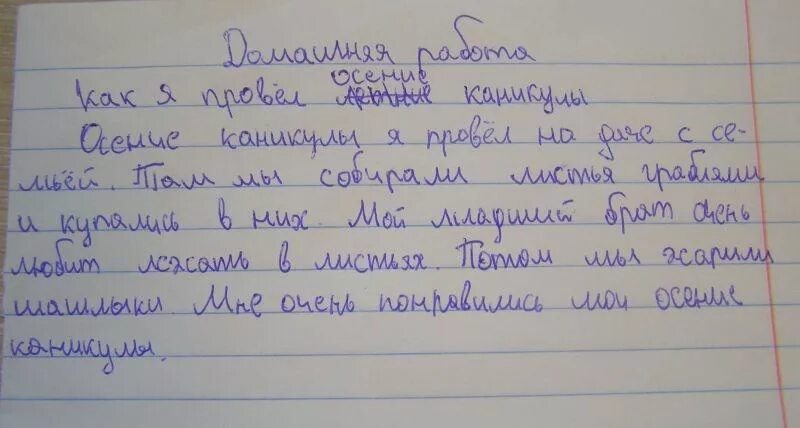 Домашняя работа
осение
Как я провёл летние каникулы
Осение каникулы я провёл на даче с се-
мьёй. Там мы собирали листья граблями
и купались в них. Мой младший брат очень
любит лежать в листьях. Потом мы жарили
шашлыки. Мне очень понравились мои осение
каникулы.